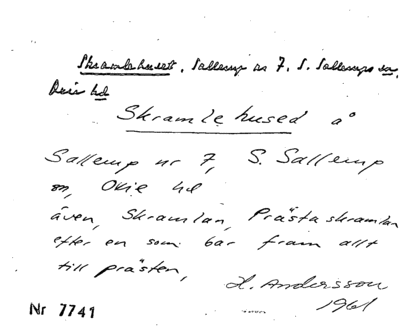 Skramlehuset, Sallerup nr 7, S. Sallerups sn,
Oxie hd
Skramlehused å
Sallerup nr 7, S. Sallerup
sn, Oxie hd
även, Skramlan, Prästaskramlan
efter en som bar fram allt
till prästen,
H. Andersson
1961
Nr 7741